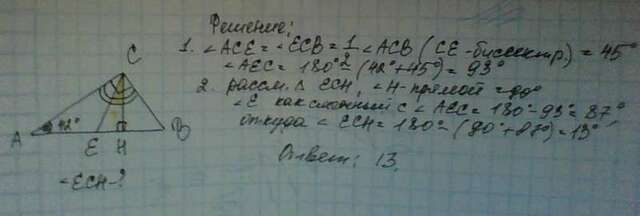 Решение:
1. ∠ACE = ∠ECB = 1/2 ∠ACB (CE - биссектр.) = 45°
∠AEC = 180° - (42° + 45°) = 93°
2. рассм. Δ ECH, ∠H - прямой = 90°
∠E как смежный с ∠AEC = 180° - 93° = 87°,
откуда ∠ECH = 180° - (90° + 87°) = 13°
Ответ: 13.
C
A 42° E H B
∠ECH - ?